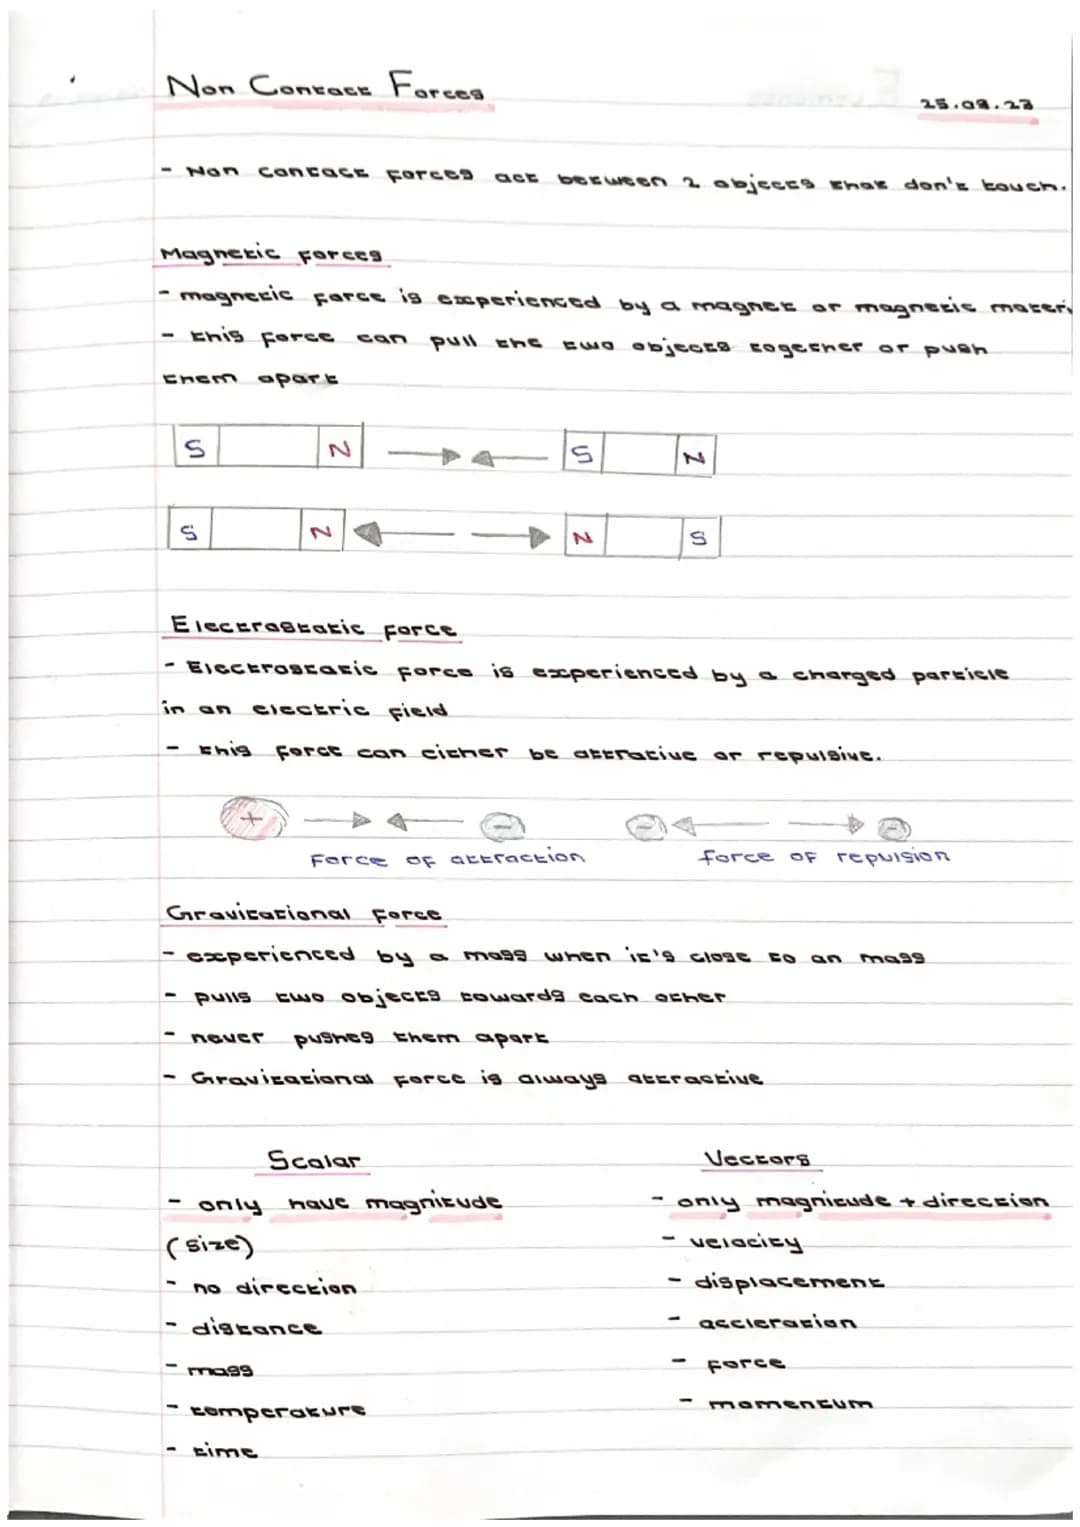 Non Contact Forces
25.09.23
- Non contact forces act between 2 objects that don't touch.
Magnetic forces
- magnetic force is experienced by a magnet or magnetic materi
- this force can pull the two objects together or push
them apart
S N S N
S N N S
Electrostatic force
- Electrostatic force is experienced by a charged particle
in an electric field
- this force can either be attrative or repulsive.
+ - - -
Force of attraction force of repulsion
Gravitational Force
- experienced by a mass when it's close to an mass
- pulls two objects towards each other
- never pushes them apart
- Gravitational force is always attractive
Scalar
- only have magnitude
(size)
- no direction
- distance
- mass
- temperature
- time
Vectors
- only magnitude + direction
- velocity
- displacement
- accleration
- force
- momentum